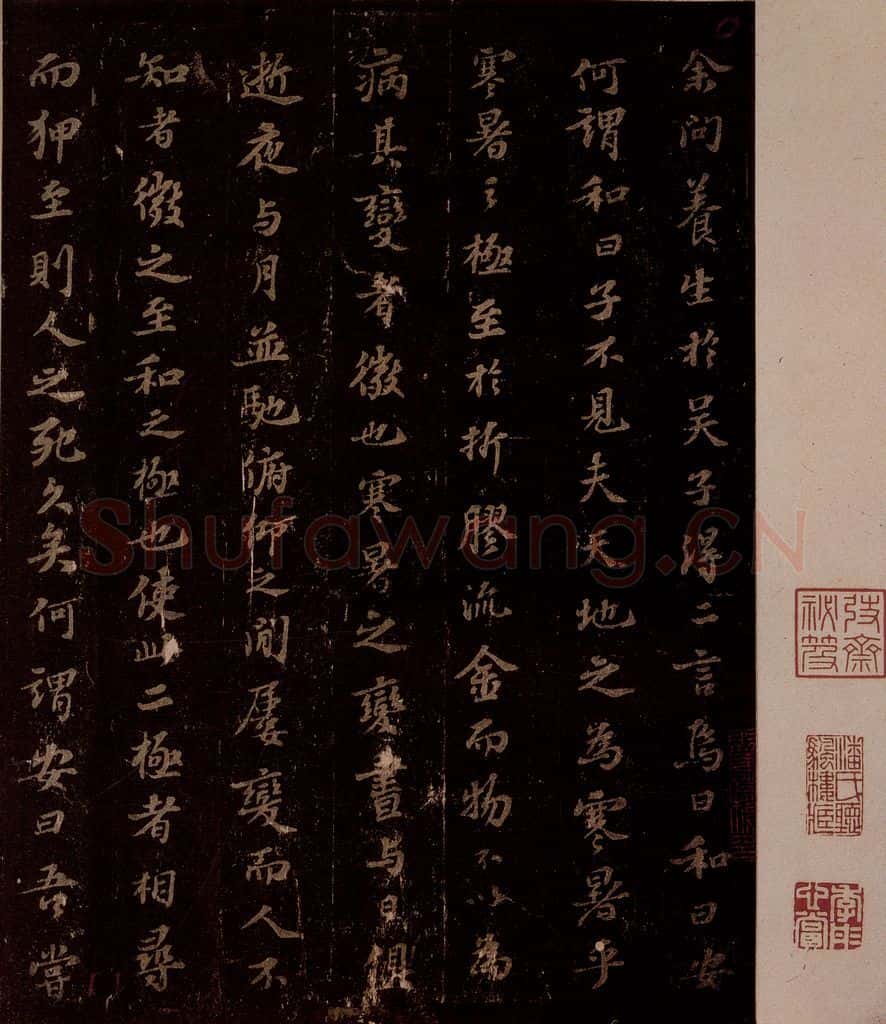 余问養生於吴子得二言焉曰和曰安
何謂和曰子不見夫天地之為寒暑乎
寒暑之極至於折膠流金而物不以為
病其變者微也寒暑之變晝与日俱
逝夜与月並馳俯仰之間屢變而人不
知者微之至和之極也使此二極者相尋
而狎至則人之死久矣何謂安曰吾嘗
Shufawang.CN